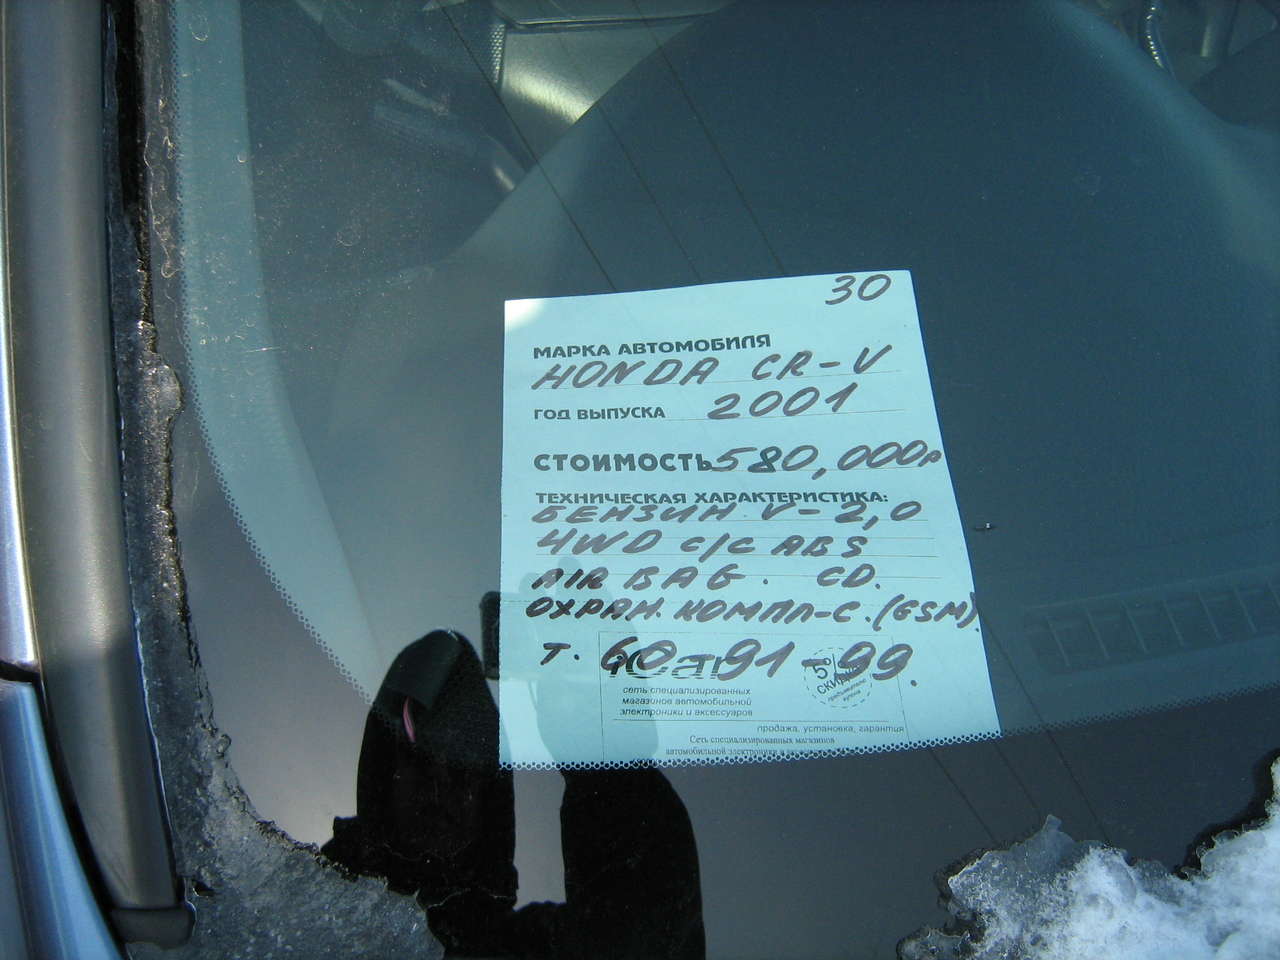 30
МАРКА АВТОМОБИЛЯ
HONDA CR-V
ГОД ВЫПУСКА 2001
СТОИМОСТЬ 580,000р
ТЕХНИЧЕСКАЯ ХАРАКТЕРИСТИКА:
БЕНЗИН V-2,0
4WD c/c ABS
AIR BAG. CD.
ОХРАН. КОМПЛ-С. (GSM).
Т. 60-91-99.
iCar
5% СКИДКА
сеть специализированных
магазинов автомобильной
электроники и аксессуаров
продажа, установка, гарантия
Сеть специализированных магазинов
автомобильной электроники и